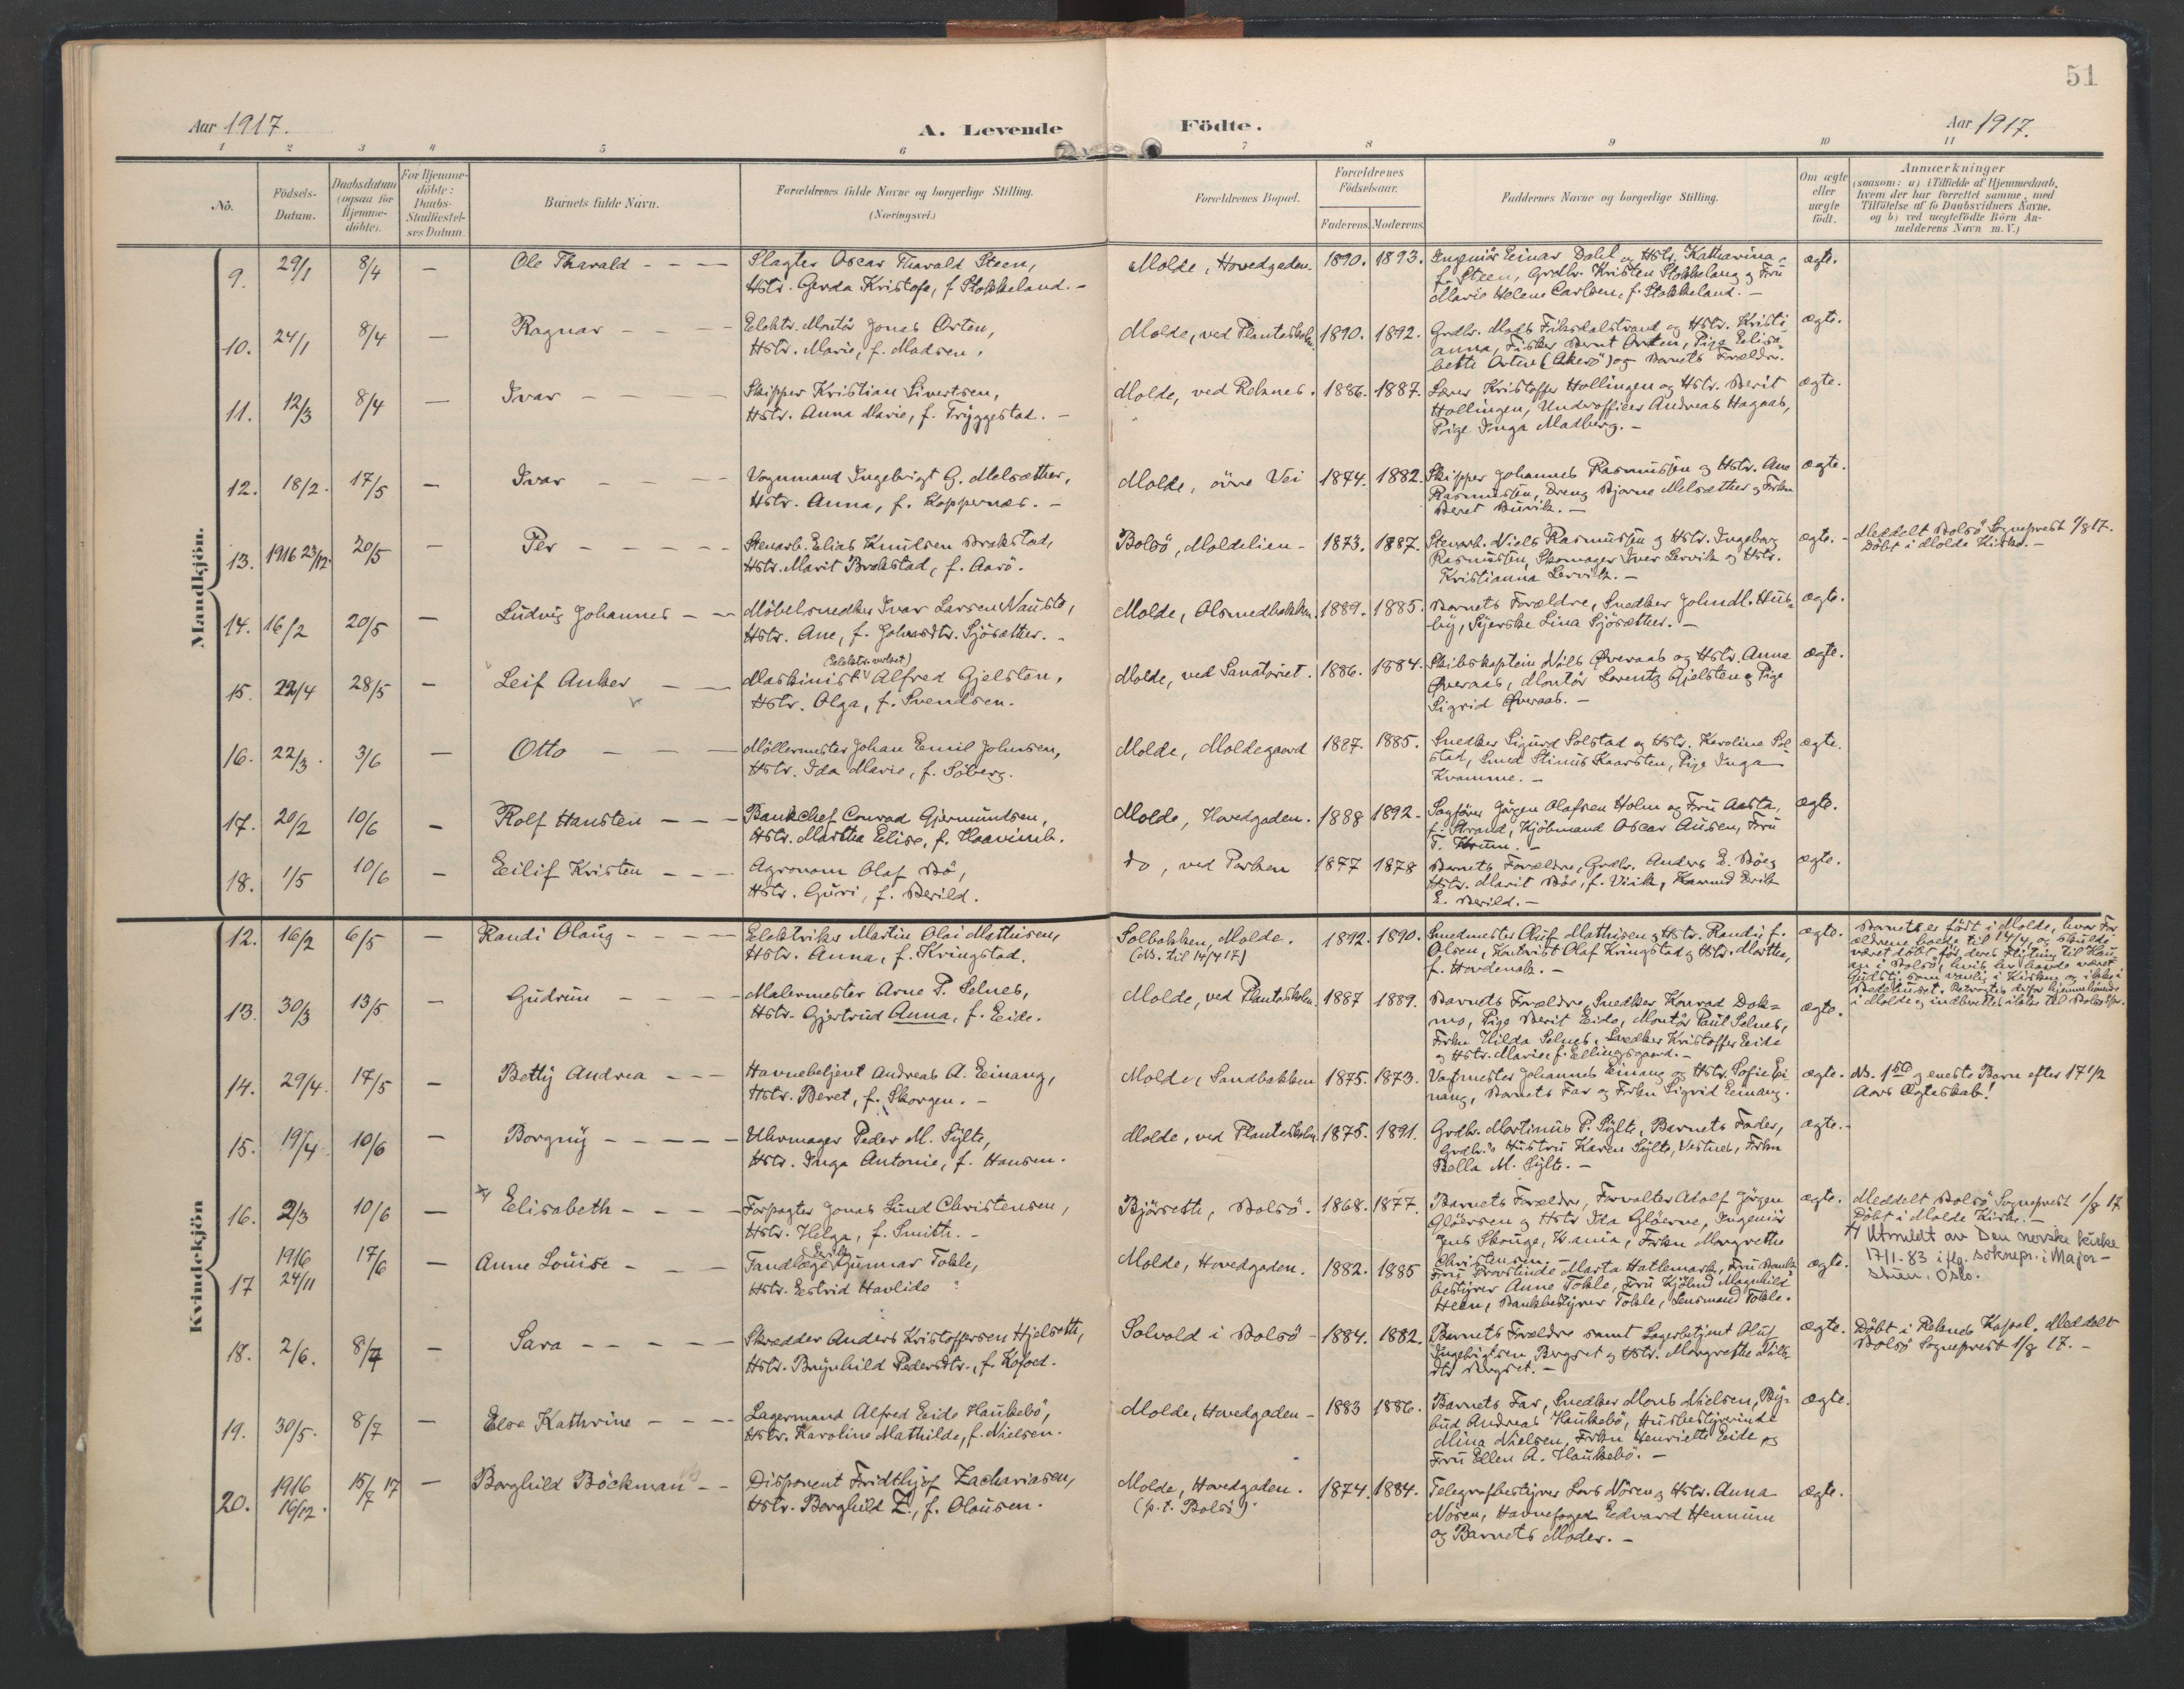 51
Aar 1917.
A. Levende Födte.
Aar 1917.
1 2 3 4 5 6 7 8 9 10 11
No.
Födsels-
Datum.
Daabsdatum
(ogsaa for
Hjemme-
döbte).
For Hjemme-
döbte:
Daabs-
Stadfæstel-
ses Datum.
Barnets fulde Navn.
Forældrenes fulde Navne og borgerlige Stilling.
(Næringsvei.)
Forældrenes Bopæl.
Forældrenes
Födselsaar.
Faderens. Moderens.
Faddernes Navne og borgerlige Stilling.
Om ægte
eller
uægte
født.
Anmærkninger
(saasom: a) i Tilfælde af Hjemmedaab,
hvem der har forrettet samme, med
Tilföielse af to Daabsvidners Navne.
og b) ved uægtefödte Börn An-
melderens Navn m. V.)
Mandkjön.
9. 29/1 8/4 — Ole Tharald - - -
Slagter Oscar Tharald Steen,
Hstr. Gerda Kristofa, f. Stokkeland. -
Molde, Hovedgaden. 1890. 1893.
Ingeniör Einar Dahl og Hstr. Katharina,
f. Steen, Grdbr. Kristen Stokkeland og Fru
Marie Helene Carlsen, f. Stokkeland. -
ægte.
10. 24/1 8/4 — Ragnar - - -
Elektr. Montör Jonas Orten,
Hstr. Marie, f. Madsen.
Molde, ved Planteskolen. 1890. 1892.
Grdbr. Mads Fiksdalstrand og Hstr. Kristi-
anna, Fisker Bernt Orten, Pige Elisa-
beth Orten (Akerö) og Barnets Forældre.
ægte.
11. 12/3 8/4 — Ivar - - -
Skipper Kristian Sivertsen,
Hstr. Anna Marie, f. Tryggestad. -
Molde, ved Reknes. 1886. 1887.
Lærer Kristoffer Hollingen og Hstr. Berit
Hollingen, Underofficer Andreas Hagaas,
Pige Inga Madberg. -
ægte.
12. 18/2. 17/5 — Ivar - - -
Vognmand Ingebrigt G. Melsæther,
Hstr. Anna, f. Koppernæs. -
Molde, övre Vei 1874. 1882.
Skipper Johannes Rasmussen og Hstr. Ane
Rasmussen, Dreng Bjarne Melsæther og Frkn
Beret Buvik. -
ægte.
13. 1916 23/12. 20/5 — Per - - - -
Stenarb. Elias Knutsen Brokstad,
Hstr. Marit Brokstad, f. Aarö.
Bolsö, Moldelien - 1873. 1887.
Stenarb. Niels Rasmussen og Hstr. Ingeborg
Rasmussen, Skomager Iver Lervik og Hstr.
Kristianna Lervik. -
ægte. -
Meddelt Bolsö Sogneprest 1/8 17.
Döbt i Molde Kirke. -
14. 16/2 20/5 — Ludvig Johannes - -
Möbelsnedker Ivar Larsen Nauste,
Hstr. Ane, f. Johnsdtr. Sjösæther. -
Molde, Olsmedbakken. 1889. 1885.
Barnets Forældre, Snedker John M. Hus-
by, Syerske Lina Sjösæther. -
ægte.
15. 22/4 28/5 — Leif Anker - -
(Elektr. verket)
Maskinist Alfred Gjelsten,
Hstr. Olga, f. Svendsen.
Molde, ved Sanatoriet. 1886. 1884.
Skibskaptein Nils Överaas og Hstr. Anna
Överaas, Montör Lorentz Gjelsten og Pige
Sigrid Överaas. -
ægte.
16. 22/3. 3/6 — Otto - - -
Möllermester Johan Emil Johnsen,
Hstr. Ida Marie, f. Söberg.
Molde, Moldegaard 1887. 1885.
Snedker Sigurd Solstad og Hstr. Karoline Sol-
stad, Smed Stinus Kaarsten, Pige Inga
Kvamme. -
ægte.
17. 20/2 10/6 — Rolf Hansten - - -
Bankchef Conrad Gjermundsen,
Hstr. Martha Elise, f. Haavimb.
Molde, Hovedgaden. 1888 1892.
Sagförer Jörgen Olafsen Holm og Fru Aasta,
f. Strand, Kjöbmand Oscar Ausen, Fru
T. Krum. -
ægte.
18. 1/5 10/6 — Eilif Kristen - - -
Agronom Olaf Bö,
Hstr. Guri, f. Berild.
do, ved Parken 1877 1878
Barnets Forældre, Grdbr. Anders E. Böe og
Hstr. Marit Böe, f. Viik, Karmd Erik
E. Berild. -
ægte.
Kvindekjön
12. 16/2 6/5 — Randi Olaug - - - -
Elektriker Martin Olai Mathisen,
Hstr. Anna, f. Kringstad.
Solbakken, Molde.
(NB. til 14/4 17) 1892. 1890.
Smedmester Oluf Mathisen og Hstr. Randi, f.
Olsen, Kontorist Olaf Kringstad og Hstr. Martha,
f. Hordenak. -
ægte.
Barnet er födt i Molde, hvor For-
ældrene boede til 14/4, og skulde
været döbt för deres Flytning til
i Bolsö, hvis der havde været
Gudstj. som vanlig i Kirken og ikke i
Bedehuset. Betragtes derfor hjemmehörende
i Molde og indberettes ikke til Bolsö Spr.
13. 30/3 13/5 — Gudrun - - - -
Malermester Arne P. Selnes,
Hstr. Gjertrud Anna, f. Eide.
Molde, ved Planteskolen. 1887 1889.
Barnets Forældre, Snedker Konrad Dok-
mo, Pige Berit Eide, Montör Paul Selnes,
Frkn Hilda Selnes, Snedker Kristoffer Eide
og Hstr. Marie, f. Ellingsgaard. -
ægte.
14. 29/4. 17/5 — Betty Andrea - - -
Havnebetjent Andreas A. Einang,
Hstr. Beret, f. Skorgen. -
Molde, Sandbakken 1875. 1873.
Vagtmester Johannes Einang og Hstr. Sofie Ei-
nang, Barnets Far og Frkn Sigrid Einang.
ægte.
NB. 1ste og eneste Barn efter 17 1/2
Aars Ægteskab!
15. 19/4. 10/6 — Borgny - - - - -
Uhrmager Peder M. Sylte,
Hstr. Inga Antonie, f. Hansen.
Molde, ved Planteskolen. 1875. 1891.
Grdbr. Martinus P. Sylte, Barnets Fader,
Grdbr's Hustru Karen Sylte, Vestnes, Frkn
Bella M. Sylte. -
ægte. -
16. 2/3 10/6 — Elisabeth - - - -
Forpagter Jonas Lund Christensen,
Hstr. Helga, f. Smith. -
Bjørsett, Bolsö. 1868. 1877.
Barnets Forældre, Forvalter Adolf Jörgen
Glöersen og Hstr Ida Glöerse, Ingeniör
Jens Skouge, H.ania, Frkn Margrethe
Christensen. -
ægte.
Meddelt Bolsö Sogneprest 1/8 17
Döbt i Molde Kirke. -
+) Utmeldt av Den norske kirke
17/1-83 iflg. soknepr. i Major-
stuen. Oslo.
17 1916 24/11 17/6 — Anne Louise - - -
Tandlæge Gunnar Tokle,
Hstr. Estrid Havlide
Molde, Hovedgaden. 1882. 1885
Fru Provstinde Marta Hatlemark, Fru Bank-
bestyrer Anne Tokle, Fru Kjöbmd Magnhild
Heen, Bankbestyrer Tokle, Lensmand Tokle.
ægte.
18. 2/6. 8/7 — Sara - - - - -
Skredder Anders Kristoffersen Hjelset,
Hstr. Brynhild Pedersdtr., f. Kofoed.
Solvold i Bolsö - 1884. 1882.
Barnets Forældre samt Lagerbetjent Oluf
Ingebrigtsen Bergset og Hstr. Margrethe Nils-
dtr Bergset. -
ægte.
Döbt i Reknes Kapel. Meddelt
Bolsö Sogneprest 1/8 17. -
19. 30/5. 8/7 — Elsa Kathrine - - --
Lagermand Alfred Eide Haukebö,
Hstr. Karoline Mathilde, f. Nielsen.
Molde, Hovedgaden - 1883 1886.
Barnets Far, Snedker Mons Nielsen, By-
bud Andreas Haukebö, Husbestyrerinde
Mina Nielsen, Frkn Henriette Eide og
Fru Ellen A. Haukebö. -
ægte.
20. 1916 16/12. 15/7 17 — Borghild Böckman - -
Disponent Fridthjof Zachariasen,
Hstr. Borghild Z., f. Olausen.
Molde, Hovedgaden.
(p.t. Bolsö). 1874. 1884.
Telegrafbestyrer Lars Nören og Hstr. Anna
Nören, Havnefoged Edvard Hennum
og Barnets Moder. -
ægte.